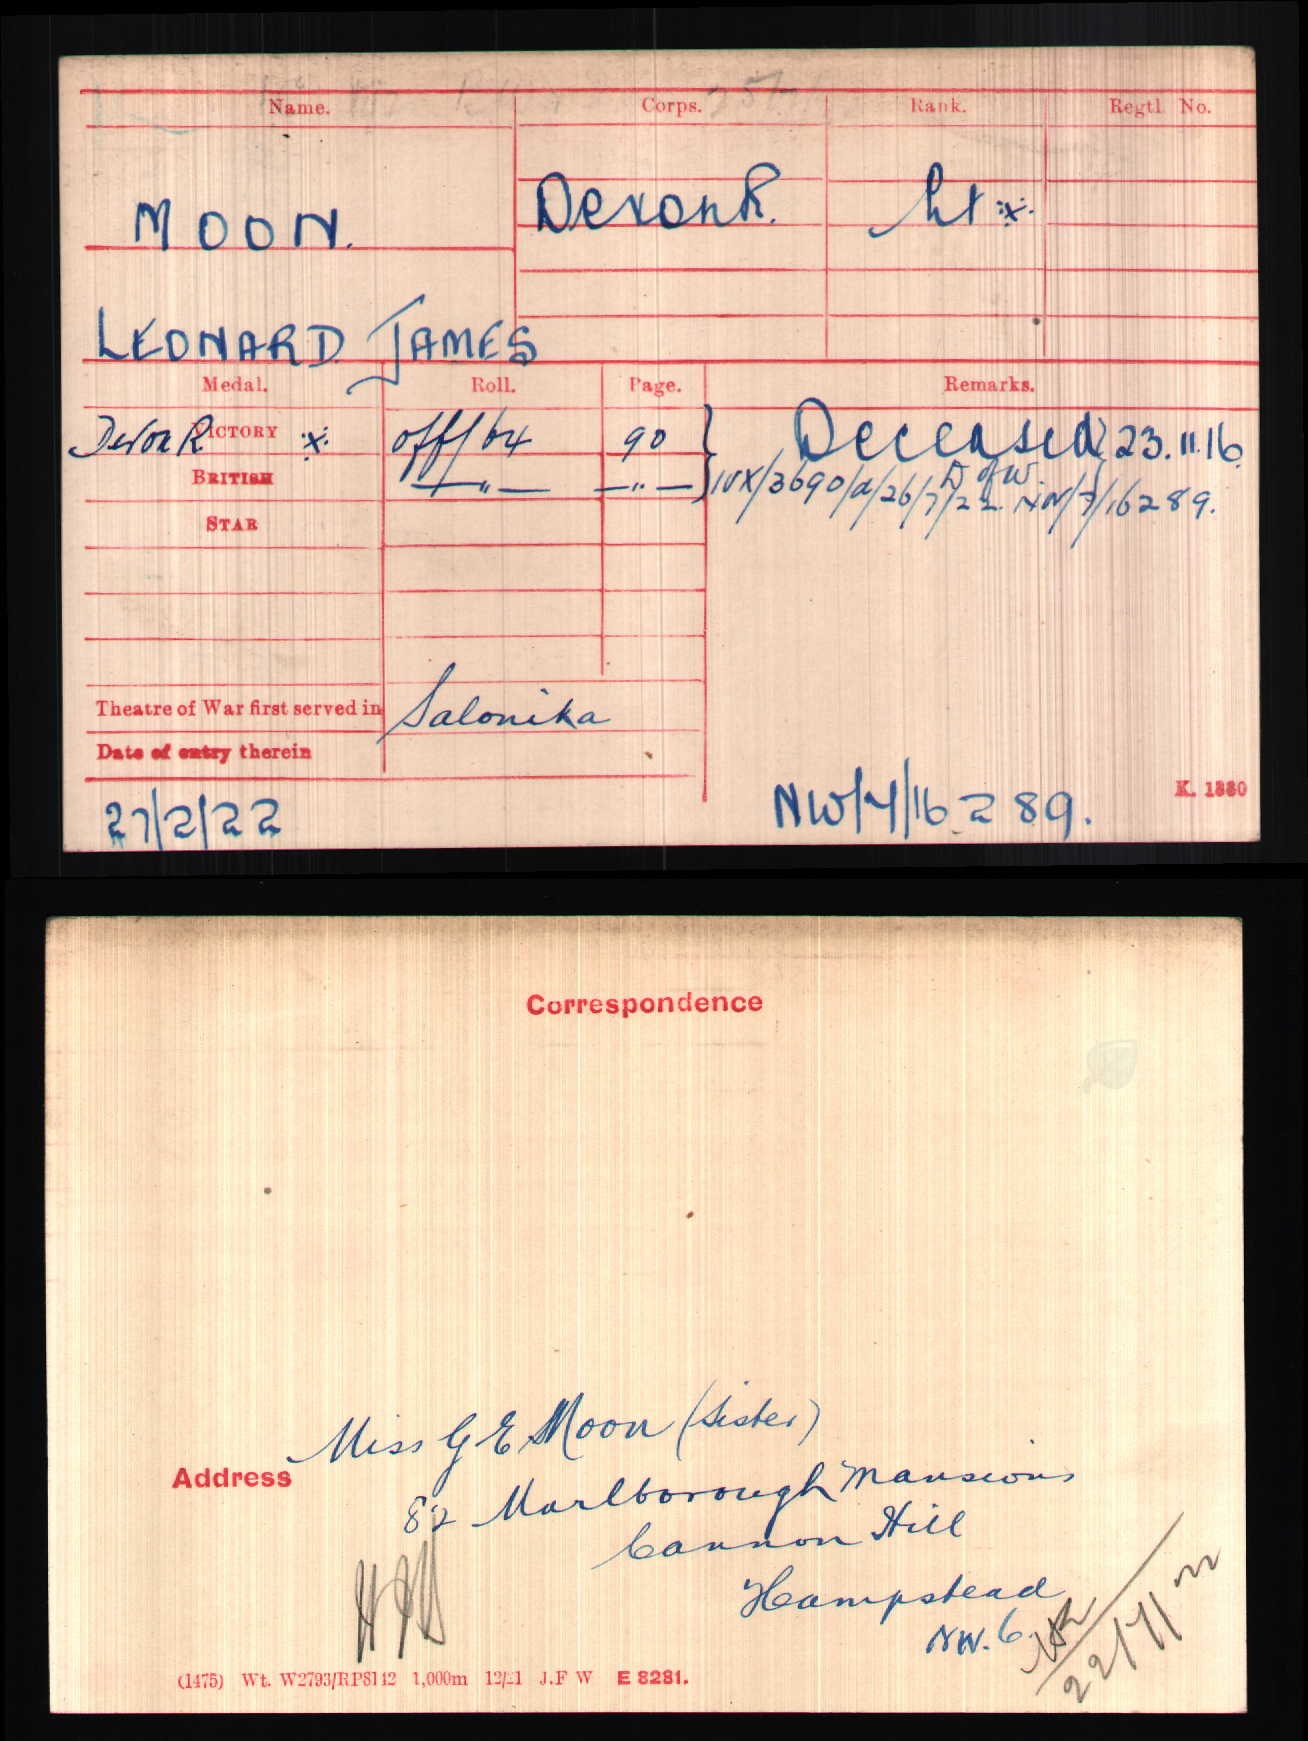 Name. Corps. Rank. Regtl. No.
MOON. Devon R. Lt ※.
LEONARD JAMES
Medal. Roll. Page. Remarks.
Devon R VICTORY ※ off/64 90 } Deceased 23.11.16.
D of W.
BRITISH —"— —"— IVX/3690/a/26/7/22. NW/7/16289.
STAR
Theatre of War first served in Salonika
Date of entry therein
K. 1380
27/2/22 NW/7/16289.
Correspondence
Miss G E Moon (Sister)
Address
82 Marlborough Mansions
Cannon Hill
Hampstead
NW. 6.
22/7/22
(1475) Wt. W2793/RP8142 1,000m 12/21 J.F W E 8281.